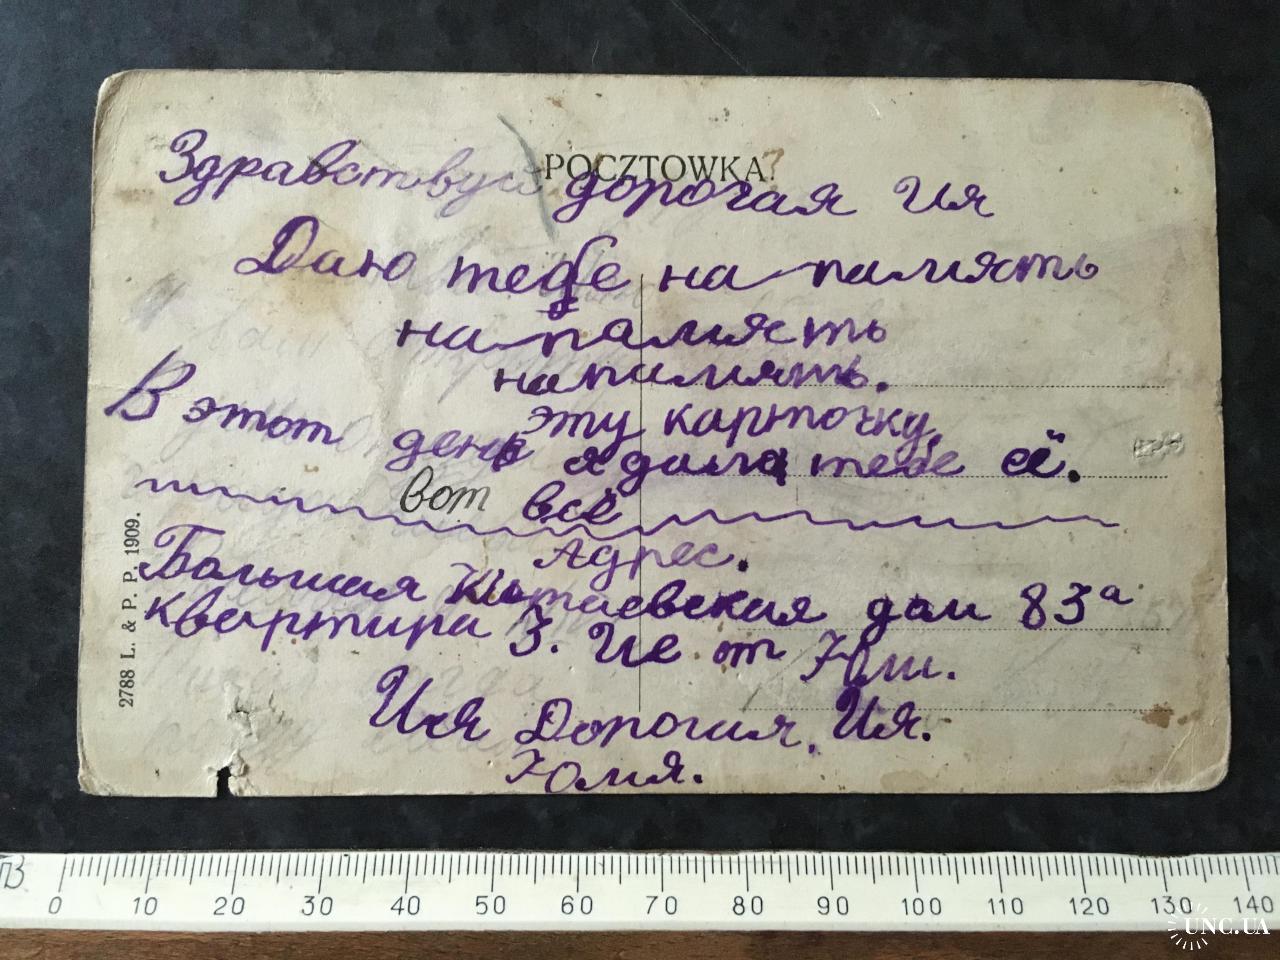 POCZTOWKA
Здравствуй дорогая Ия
Даю тебе на память
на память
на память.
эту карточку.
В этот день я дала тебе её.
вот всё
Адрес.
Большая Китаевская дом 83а
квартира 3. Ие от Юли.
Ия Дорогая, Ия.
Юлия.
2788 L. & P. P. 1909.
0 10 20 30 40 50 60 70 80 90 100 110 120 130 140
UNC.UA